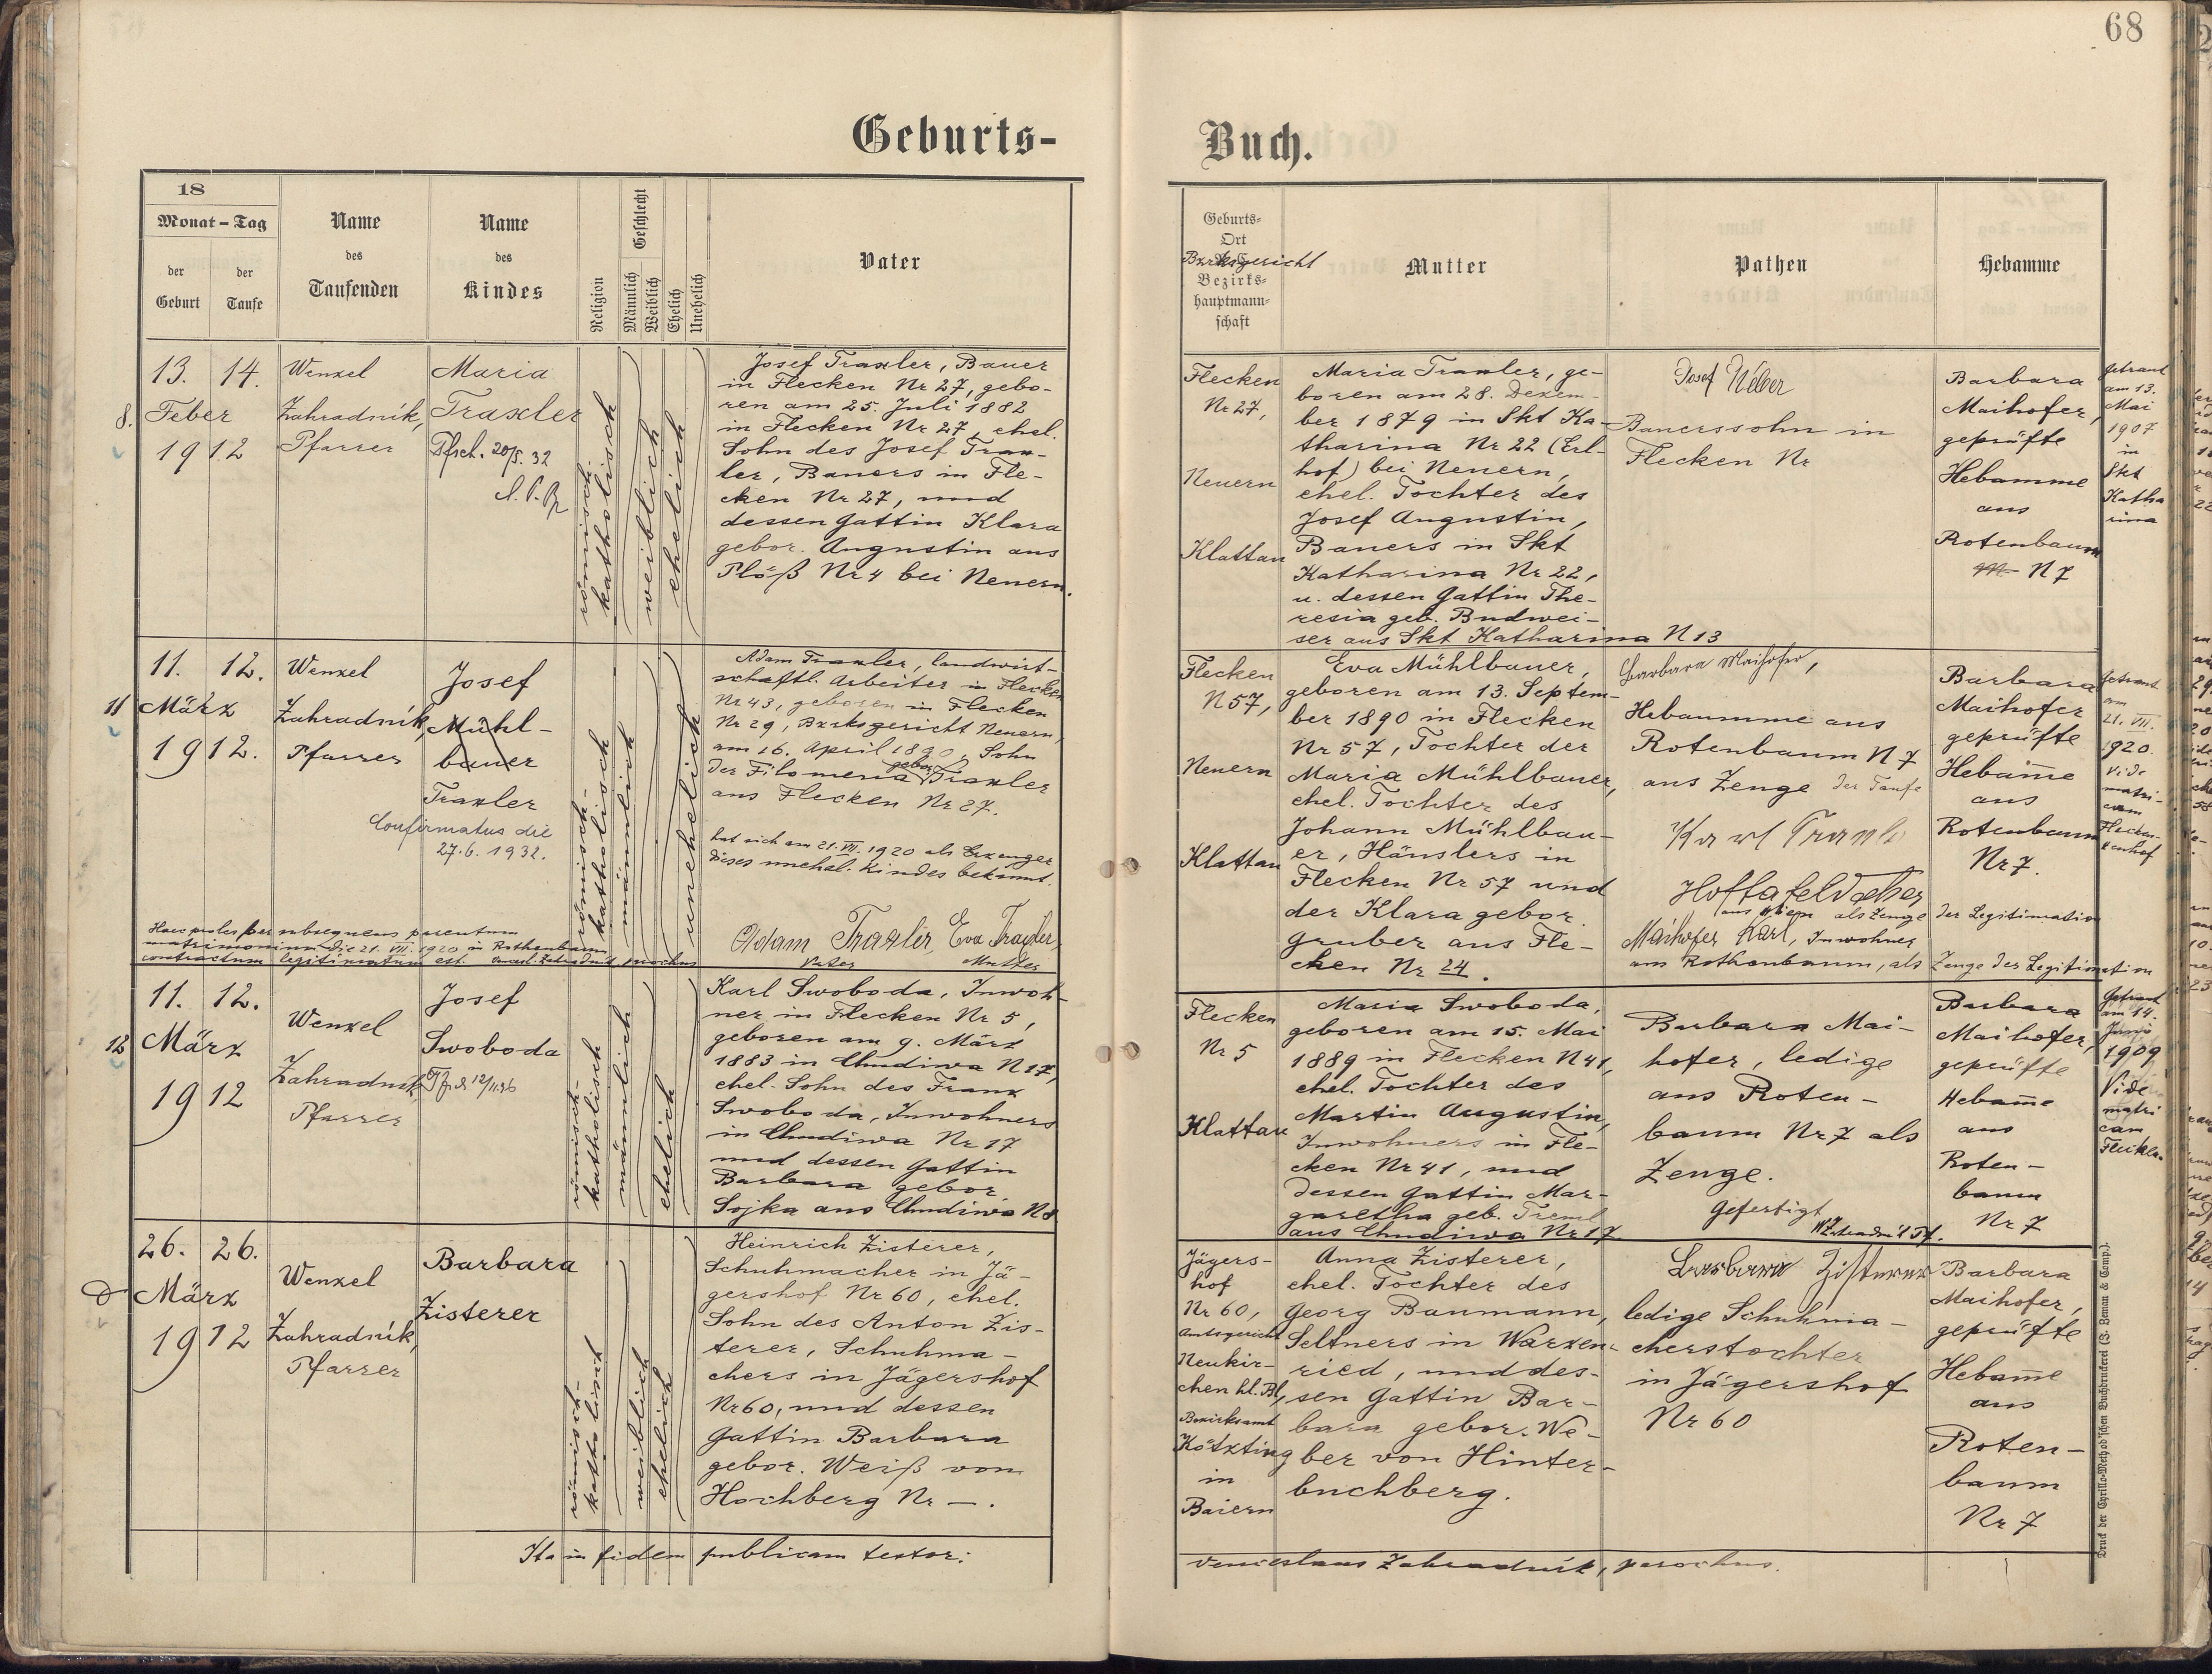 68
Geburts-
Buch.
18
Monat – Tag
der Geburt
der Taufe
Name des Taufenden
Name des Kindes
Religion
Geschlecht
Männlich
Weiblich
Ehelich
Unehelich
Vater
Geburts-
Ort
Bzrksgericht
Bezirks-
hauptmann-
schaft
Mutter
Pathen
Hebamme
8.
13. 14.
Feber
1912
Wenzel
Zahradník,
Pfarrer
Maria
Traxler
Pfsch. 20/5. 32
römisch-
katholisch
weiblich
ehelich
Josef Traxler, Bauer
in Flecken Nr 27, gebo-
ren am 25. Juli 1882
in Flecken Nr 27, ehel.
Sohn des Josef Trax-
ler, Bauers in Fle-
cken Nr 27, und
dessen Gattin Klara
gebor. Augustin aus
Plöß Nr 4 bei Neuern.
Flecken
Nr 27,
Neuern
Klattau
Maria Traxler, ge-
boren am 28. Dezem-
ber 1879 in Skt Ka-
tharina Nr 22 (Erl-
hof) bei Neuern,
ehel. Tochter des
Josef Augustin,
Bauers in Skt
Katharina Nr 22,
u. dessen Gattin The-
resia geb. Budwei-
ser aus Skt Katharina N 13
Josef Weber
Bauerssohn in
Flecken Nr
Barbara
Maihofer,
geprüfte
Hebamme
aus
Rotenbaum
N 7
Getraut
am 13.
Mai
1907
in
Skt
Katha
rina
11
11. 12.
März
1912.
Wenzel
Zahradník,
Pfarrer
Josef
Mühl-
bauer
Traxler
Confirmatus die
27.6. 1932.
römisch-
katholisch
männlich
unehelich
Adam Traxler, landwirt-
schaftl. Arbeiter in Flecken
Nr 43, geboren in Flecken
Nr 29, Bzrksgericht Neuern,
am 16. April 1890, Sohn
der Filomena gebor. Traxler
aus Flecken Nr 27.
hat sich am 21. VII. 1920 als Erzeuger
dieses unehel. Kindes bekannt.
Adam Traxler, Eva Traxler,
Vater Mutter
Haec proles per subsequens parentum
matrimonium die 21. VII. 1920 in Rothenbaum
contractum legitimatum est. Wencesl. Zahradník, parochus
Flecken
N 57,
Neuern
Klattau
Eva Mühlbauer,
geboren am 13. Septem-
ber 1890 in Flecken
Nr 57, Tochter der
Maria Mühlbauer,
ehel. Tochter des
Johann Mühlbau-
er, Häuslers in
Flecken Nr 57 und
der Klara gebor.
Gruber aus Fle-
cken Nr 24.
Barbara Maihofer,
Hebamme aus
Rotenbaum N 7
aus Zeuge der Taufe
Karl
als Zeuge der Legitimation
Maihofer Karl, Inwohner
aus Rothenbaum, als Zeuge der Legitimation
Barbara
Maihofer
geprüfte
Hebam̅e
aus
Rotenbaum
Nr 7.
Getraut
am
21. VII.
1920.
Vide
matri-
cam
12
11. 12.
März
1912
Wenzel
Zahradník,
Pfarrer
Josef
Swoboda
römisch-
katholisch
männlich
ehelich
Karl Swoboda, Inwoh-
ner in Flecken Nr 5,
geboren am 9. März
1883 in Chudiwa N 17,
ehel. Sohn des Franz
Swoboda, Inwohners
in Chudiwa Nr 17
und dessen Gattin
Barbara gebor.
Sojka aus Chudiwa N 8
Flecken
Nr 5
Klattau
Maria Swoboda,
geboren am 15. Mai
1889 in Flecken N 41,
ehel. Tochter des
Martin Augustin,
Inwohners in Fle-
cken Nr 41, und
dessen Gattin Mar-
garetha geb. Treml
aus Chudiwa Nr 17
Barbara Mai-
hofer, ledige
aus Roten-
baum Nr 7 als
Zeuge.
Gefertigt
WZahradník Pf.
Barbara
Maihofer,
geprüfte
Hebam̅e
aus
Roten-
baum
Nr 7
Getraut
am 14.
1909
Vide
matri
cam
26. 26.
März
1912
Wenzel
Zahradník,
Pfarrer
Barbara
Zisterer
römisch-
katholisch
weiblich
ehelich
Heinrich Zisterer,
Schuhmacher in Jä-
gershof Nr 60, ehel.
Sohn des Anton Zis-
terer, Schuhma-
chers in Jägershof
Nr 60, und dessen
Gattin Barbara
gebor. Weiß von
Hochberg Nr —.
Jägers-
hof
Nr 60,
Amtsgericht
Neukir-
chen hl. Bl,
Bezirksamt
Kötzting
in
Baiern
Anna Zisterer,
ehel. Tochter des
Georg Baumann,
Seltners in Warzen-
ried, und des-
sen Gattin Bar-
bara gebor. We-
ber von Hinter-
buchberg.
Barbara Zisterer
ledige Schuhma-
cherstochter
in Jägershof
Nr 60
Barbara
Maihofer,
geprüfte
Hebam̅e
aus
Roten-
baum
Nr 7
Ita in fidem publicam testor:
Venceslaus Zahradník, parochus.
Druck der Cyrillo-Method'schen Buchdruckerei (J. Zeman & Comp.).